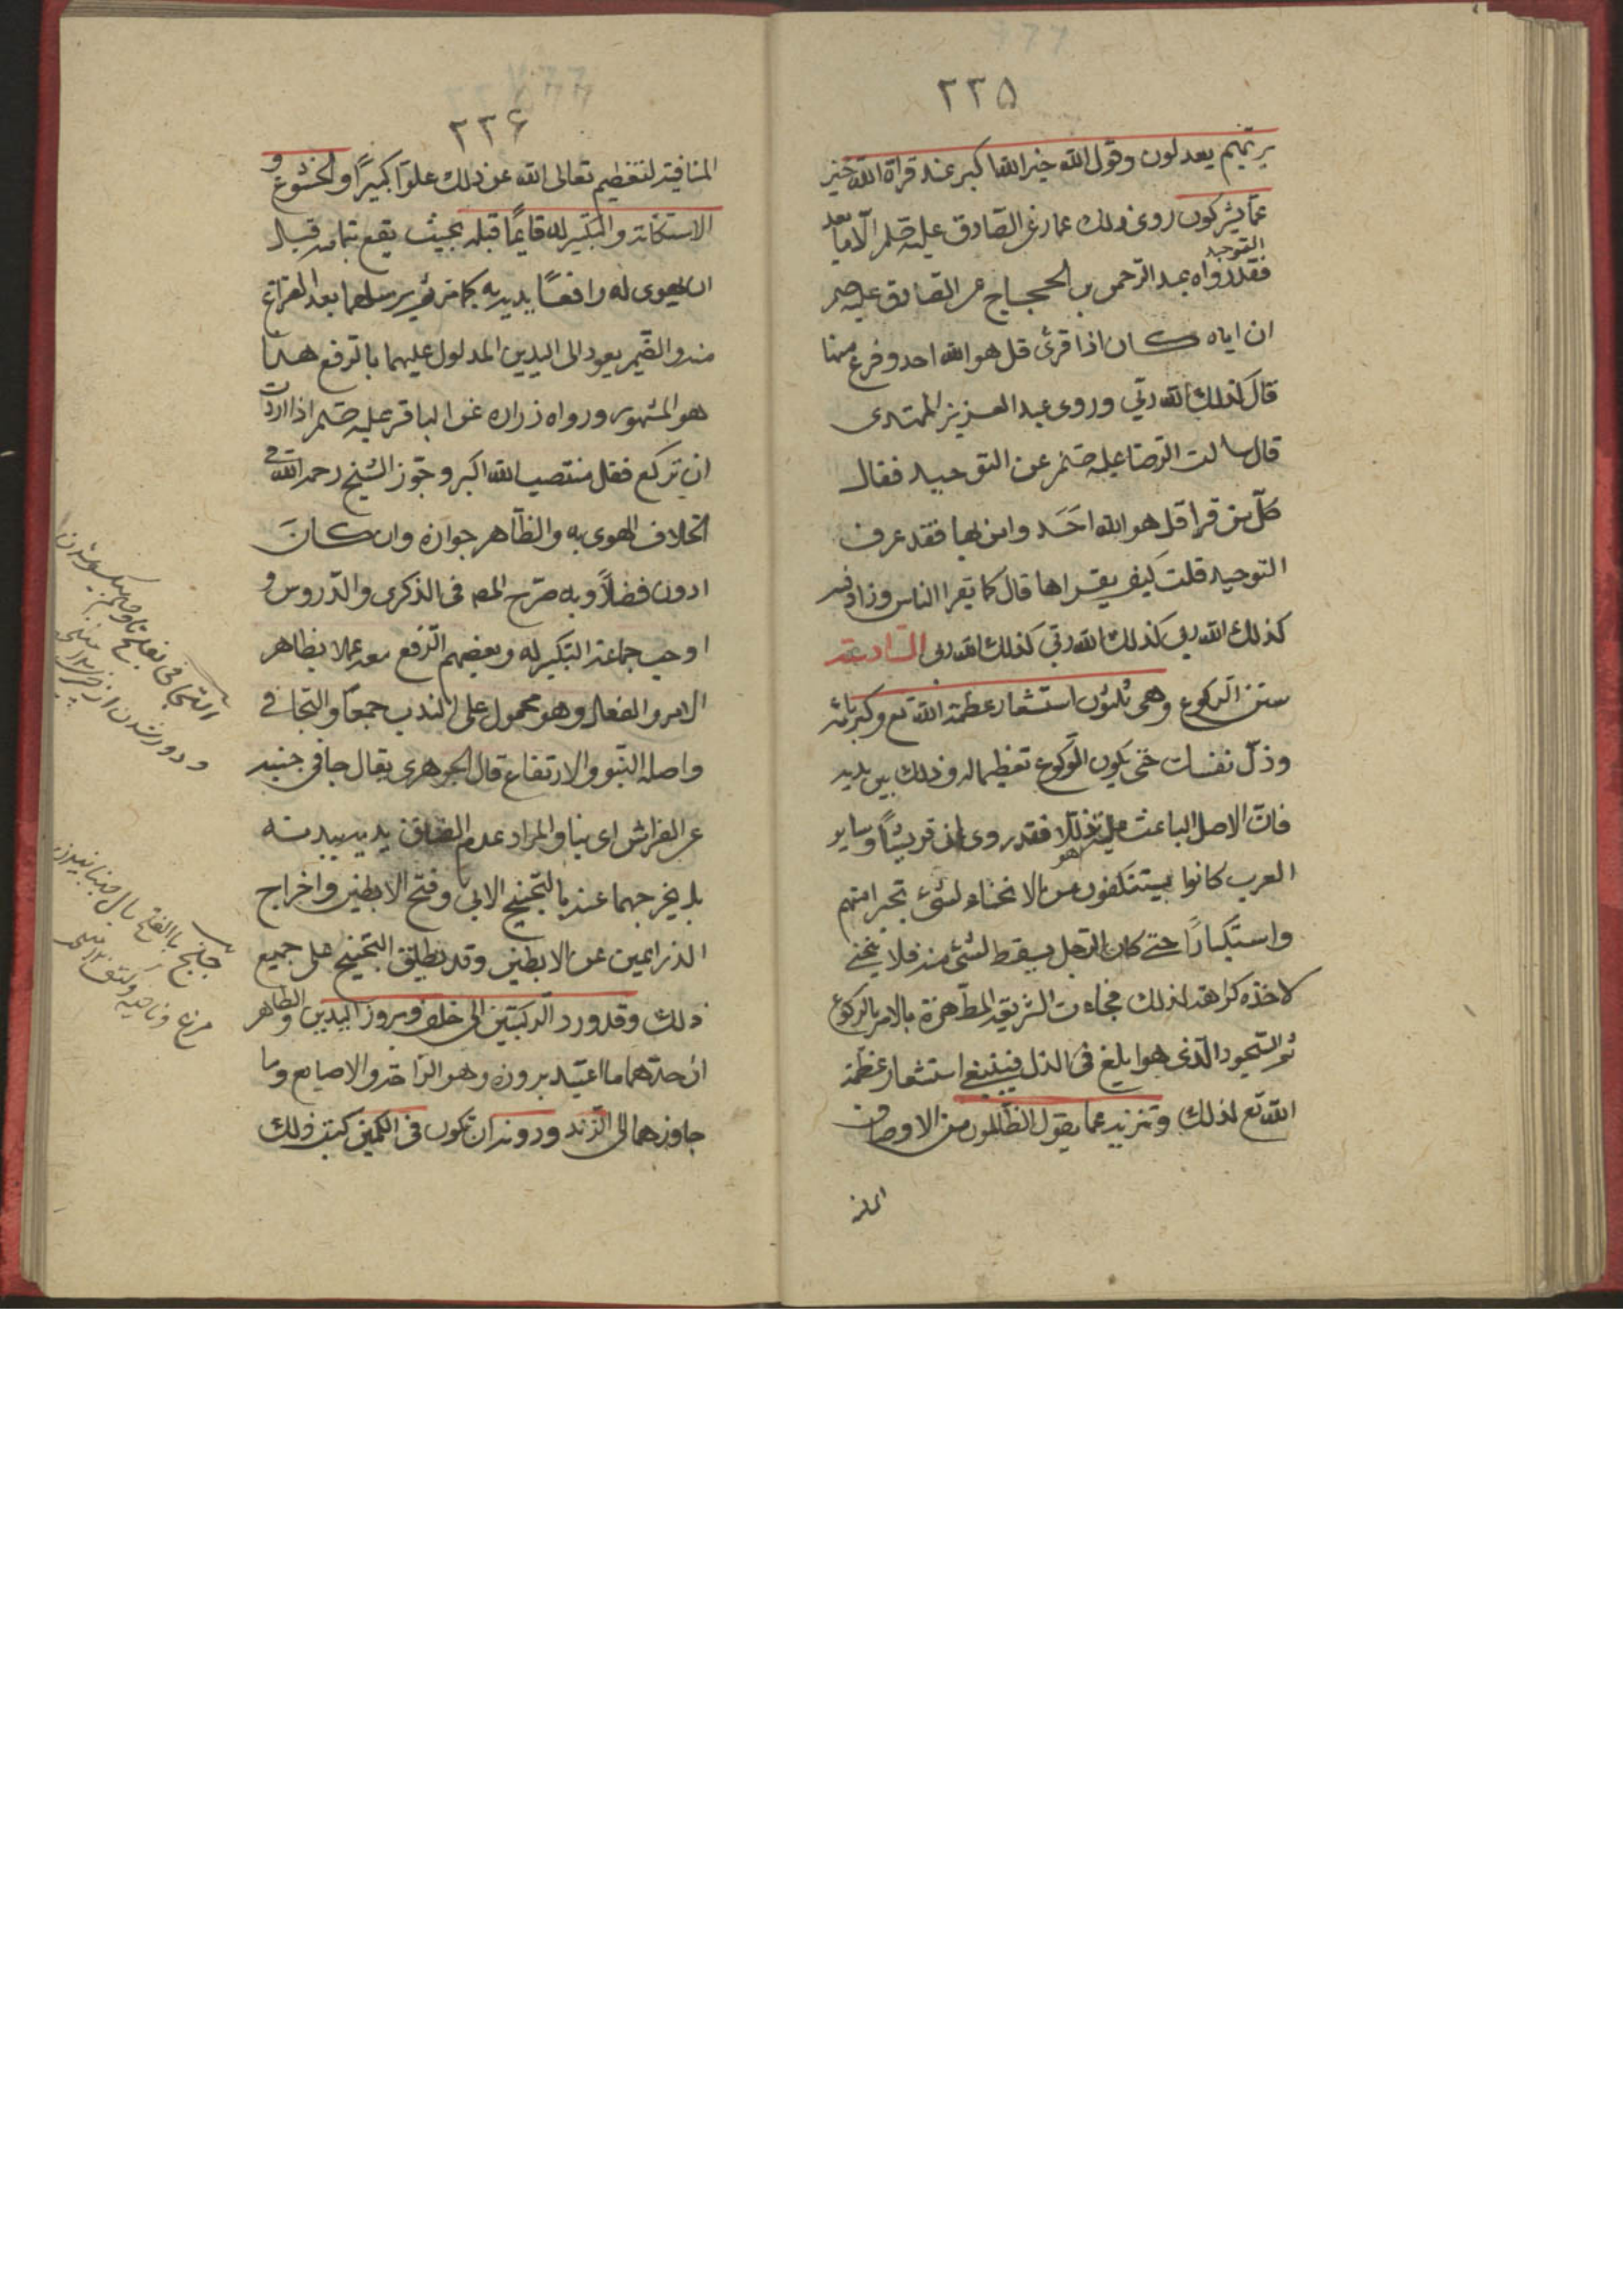 ٢٢٥
بربهم يعدلون وقول الله خير الله اكبر عند قراة الله خير
عمّا يشركون روى ذلك عمار عن الصادق عليه صلم الّا ما بعد
التوحيد
فقد رواه عبد الرحمن بن الحجاج عن الصادق عليه صم
ان اباه كان اذا قرئ قل هو الله احد وفرغ منها
قال كذلك الله ربّي وروى عبد العزيز المهتدى
قال سالت الرضا عليه صلم عن التوحيد فقال
كلّ من قرا قل هو الله اَحَد وامن بها فقد عرف
التوحيد قلت كيف يقراها قال كما يقرا الناس وزاد فيه
كذلك الله ربى كذلك الله ربّي كذلك الله ربى السّادسة
سنن الركوع وهى ثلثون استشعار عظمة الله تع وكبريائه
وذلّ نفسك حتى يكون الركوع تعظيما له وذلك بين يديه
فانّ الاصل الباعث عليه فقد روى ان قريشًا وساير
العرب كانوا يستنكفون من الانحناء لشئ تجبرا منهم
واستكبارًا حتى كان الرجل يسقط لشئ منه فلا ينحنى
لاخذه كراهة لذلك فجاءت الشريعة المطهرة بالامر بالركوع
ثم السّجود الّذى هو ابلغ فى الذل فينبغى استشعار عظمة
الله تع لذلك وتنزيه عما يقول الظالمون من الاوصاف
المنا
٢٢۶
المنافية لتعظيم تعالى الله عن ذلك علوّا كبيرًا والخشوع و
الاستكانة والتكبير له قايمًا قبله بحيث يقع بتمامه قبل
ان يهوى له رافعًا يديه به كما مرّ ثم يرسلهما بعد الفراغ
منه والضّمير يعود الى اليدين المدلول عليهما بالرفع هذا
هو المشهور ورواه زراره عن الباقر عليه صلم اذا اردت
ان تركع فقل منتصبا الله اكبر وجوّز الشيخ رحمه الله فى
الخلاف الهوى به والظاهر جوازه وان كانَ
ادون فضلاً وبه صرّح المص فى الذكرى والدّروس و
اوجب جماعة التكبير له وبعضهم الرّفع معه عملا بظاهر
الامر والفعال وهو محمول على الندب جمعًا والتجافى
واصله النبو والارتفاع قال الجوهرى يقال جافى جنبه
عن الفراش اى نبا والمراد عدم الصاق يديه ببدنه
بل يخرجهما عنه بالتجنيح الاتى وفتح الابطين واخراج
الذراعين عن الابطين وقد يطلق التجنيح على جميع
ذلك وقد ورد الركبتين الى خلف وبروز اليدين والظاهر
ان حدّهما ما اعتيد بروزه وهو الراحة والاصابع وما
جاوزهما الى الزند ودونه ان تكون فى الكمين كتب ذلك
التجافى
و دور شدن از
جناح بالفتح بال
مرغ و ناحيه و كتف